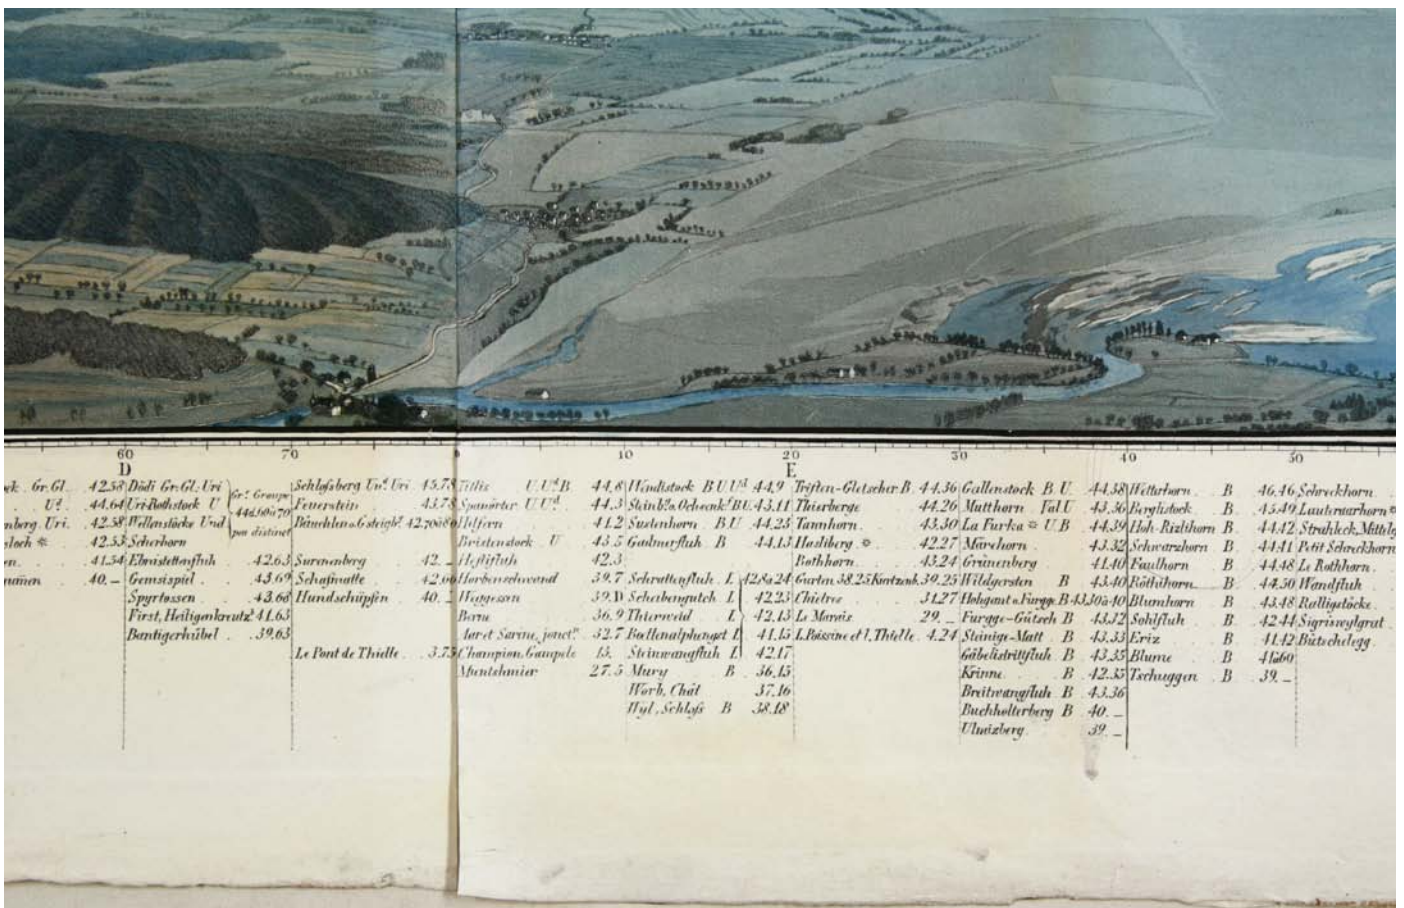 60 70 0 10 20 30 40 50
D E
Gr. Gl. 42.58
Ud. 44.64
nberg. Uri. 42.58
42.53
41.54
40. _
Dödi Gr. Gl. Uri
Uri-Rothstock U
Wellenstöcke Und
Scherhorn
Gr. Groupe
44d.60à70
peu distinct
Ebnistettenfluh 42.63
Gemsispiel 43.69
Spyrtossen 43.68
First, Heiligenkreutz 41.63
Bantigerhübel 39.63
Schlossberg Ud. Uri 45.78
Feuerstein 43.78
Bäuchlen o. Gsteigb. 42.70à80
Surenenberg 42. _
Schafmatte 42.60
Hundschüpfen 40. _
Le Pont de Thielle 3.75
Titlis U. Ud. B 44.8
Spanörter U. Ud. 44.5
Helfern 41.2
Bristenstock U 43.5
Heftifluh 42.3
Horbenschwand 39.7
Waggessen 39.D
Berne 36.9
Aar et Sarine, jonct. 32.7
Champion. Gampele 15.
Muntelmier 27.5
Wendistock B U Ud 44.9
Steinb. o. Ochsenk. B U. 43.11
Sustenhorn B U 44.25
Gadmerfluh B 44.13
Schrattenfluh. L 42.8à24
Scheibengutch L 42.23
Thierweid L 42.13
Badtenalphengst L 41.15
Steinwangfluh L 42.17
Mury B 36.15
Worb, Chât 37.16
Wyl, Schloss B 38.18
Triften-Gletscher B. 44.36
Thierberge 44.26
Tannhorn 43.30
Hasliberg * 42.27
Rothhorn 43.24
Gurten 38.25 Küntzenb. 39.25
Chiètres 31.27
Le Marais 29. _
L. Poissine et l. Thielle 4.24
Gallenstock B. U. 44.38
Mutthorn Val. U 43.36
La Furka * U. B 44.39
Märehorn 43.32
Grünenberg 41.40
Wildgersten B 43.40
Hohgant o. Furgge. B 43.30à40
Furgge-Gütsch B 43.32
Steinige-Matt B 43.33
Gäbelistrittfluh. B 43.35
Krinne B 42.35
Breitwangfluh B 43.36
Buchholterberg B 40. _
Ulmizberg 39. _
Wetterhorn B 46.46
Berglistock 45.49
Hoh-Rizlihorn B 44.42
Schwarzhorn B 44.41
Faulhorn B 44.48
Röthihorn B 44.50
Blumhorn B 43.48
Sohlfluh B 42.44
Eriz B 41.42
Blume B 41à60
Tschuggen B 39. _
Schreckhorn
Lauteraarhorn *
Strahleck, Mittelg
Petit Schreckhorn
Le Rothhorn
Wandfluh
Ralligstöcke
Sigriswylgrat
Bütschelegg